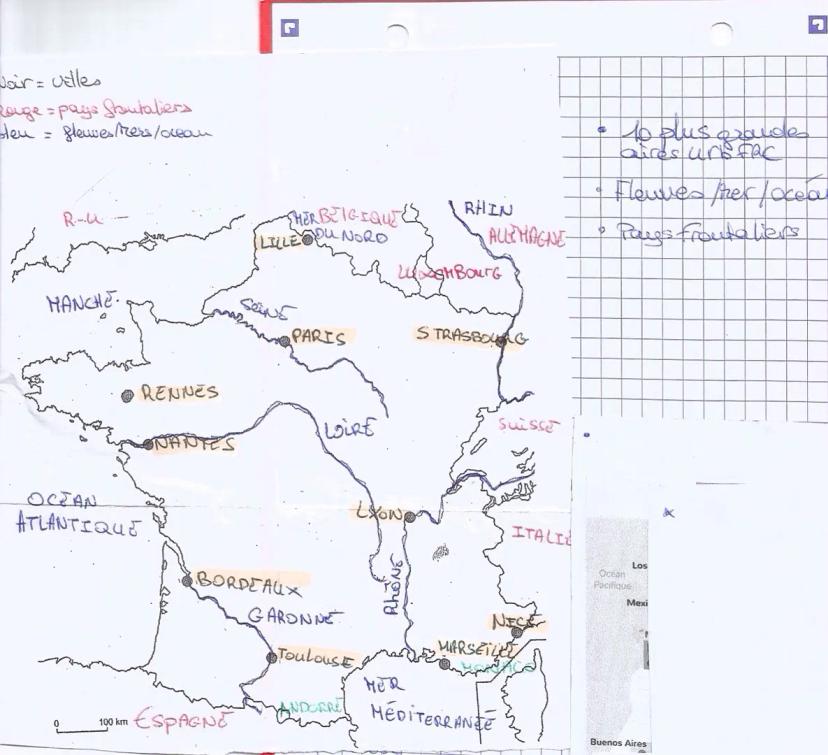 Noir = villes
Rouge = pays frontaliers
bleu = fleuves/mers/océan
• 10 plus grandes
aires urb FRC
• Fleuves/mer/océa
• Pays frontaliers
R-U
MER BELGIQUE
DU NORD
LILLE
RHIN
ALLEMAGNE
LUXEMBOURG
MANCHE
SEINE
PARIS
STRASBOURG
RENNES
LOIRE
SUISSE
NANTES
OCÉAN
ATLANTIQUE
LYON
ITALIE
Los
Océan
Pacifique
Mexi
BORDEAUX
RHÔNE
GARONNE
NICE
MARSEILLE
MONACO
TOULOUSE
MER
MÉDITERRANÉE
ANDORRE
ESPAGNE
0 100 km
Buenos Aires